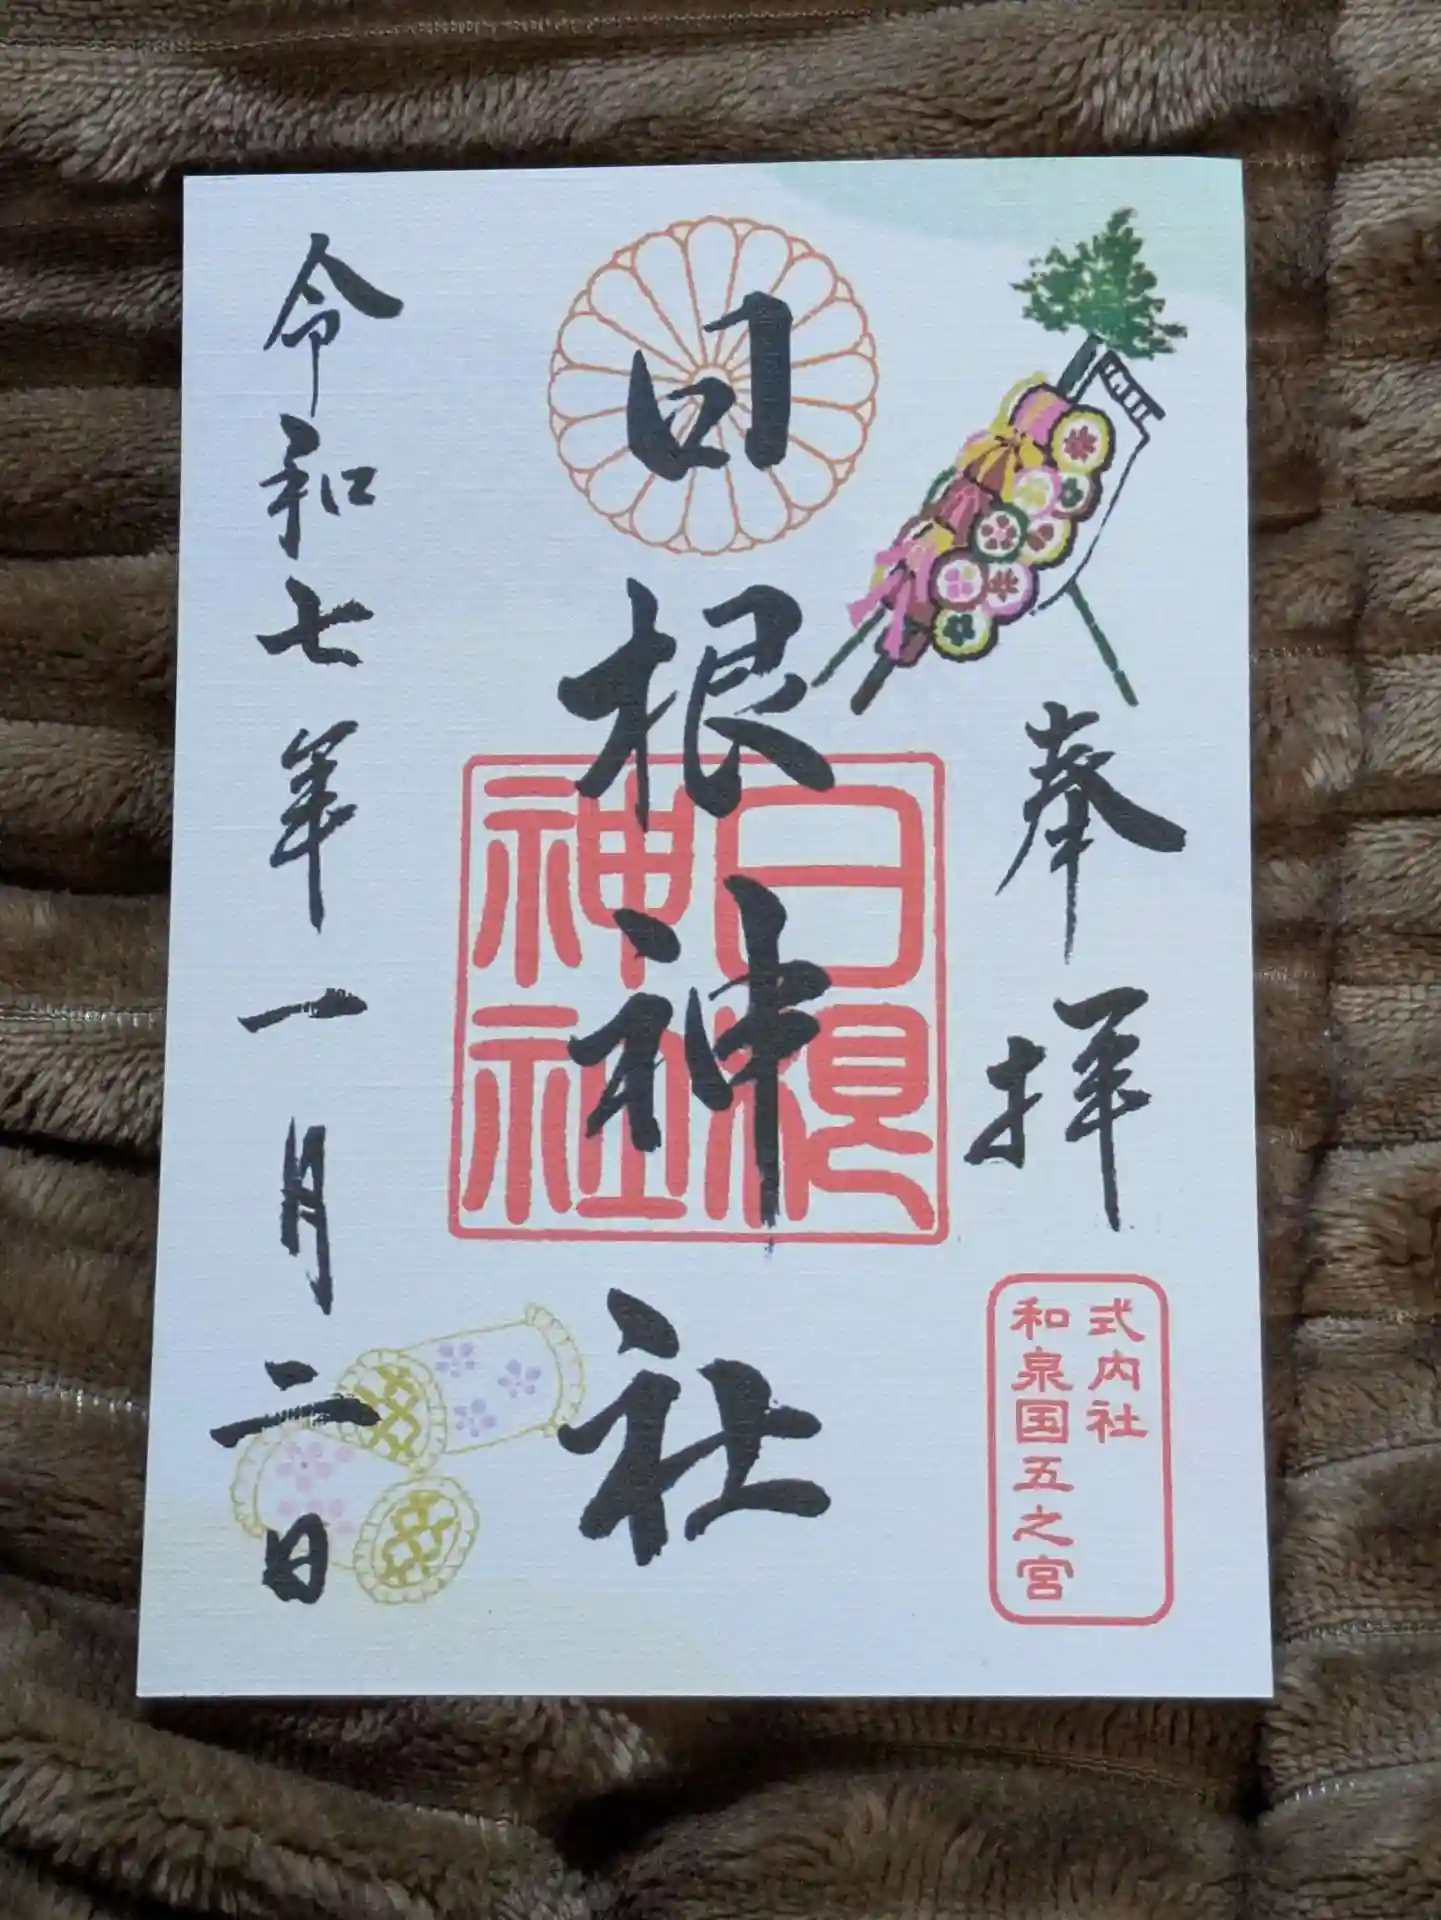 奉拝
式内社
和泉国五之宮
日根神社
日根
神社
令和七年一月二日